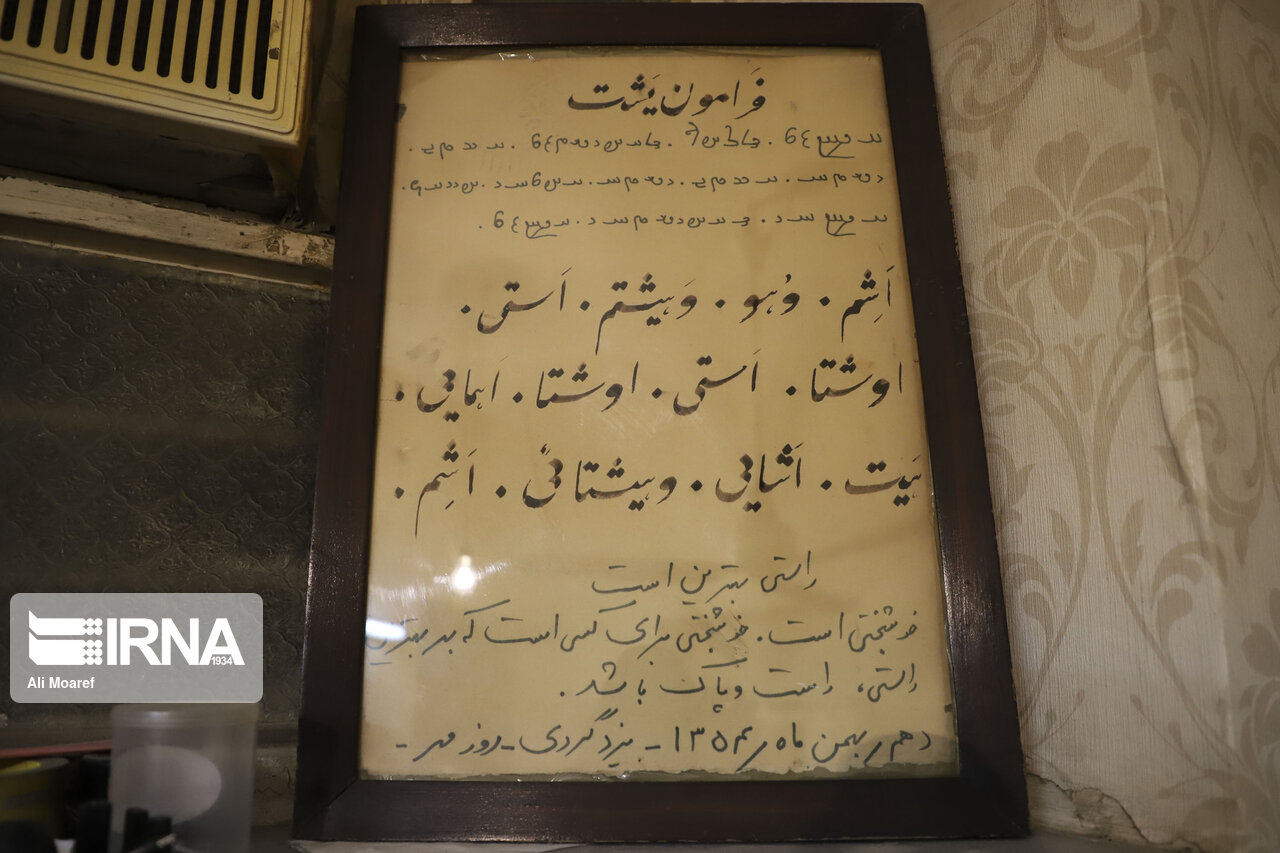 فَرَامون یَشت
𐬀𐬴𐬆𐬨 . 𐬬𐬊𐬵𐬏 . 𐬬𐬀𐬵𐬌𐬱𐬙𐬆𐬨 . 𐬀𐬯𐬙𐬌 .
𐬎𐬱𐬙𐬁 . 𐬀𐬯𐬙𐬌 . 𐬎𐬱𐬙𐬁 . 𐬀𐬵𐬨𐬁𐬌 .
اَشِم . وُهو . وَهیشتم . اَستی .
اوشتا . اَستی . اوشتا . اَهمایی .
هَیَت . اَشایی . وهیشتائی . اَشِم .
راستی بهترین است
خوشبختی است . خوشبختی برای کسی است که بهترین
راستی، راست و پاک باشد .
دهم بهمن ماه ۱۳۵۴ - یزدگردی - روز مهر -
IRNA
1934
Ali Moaref